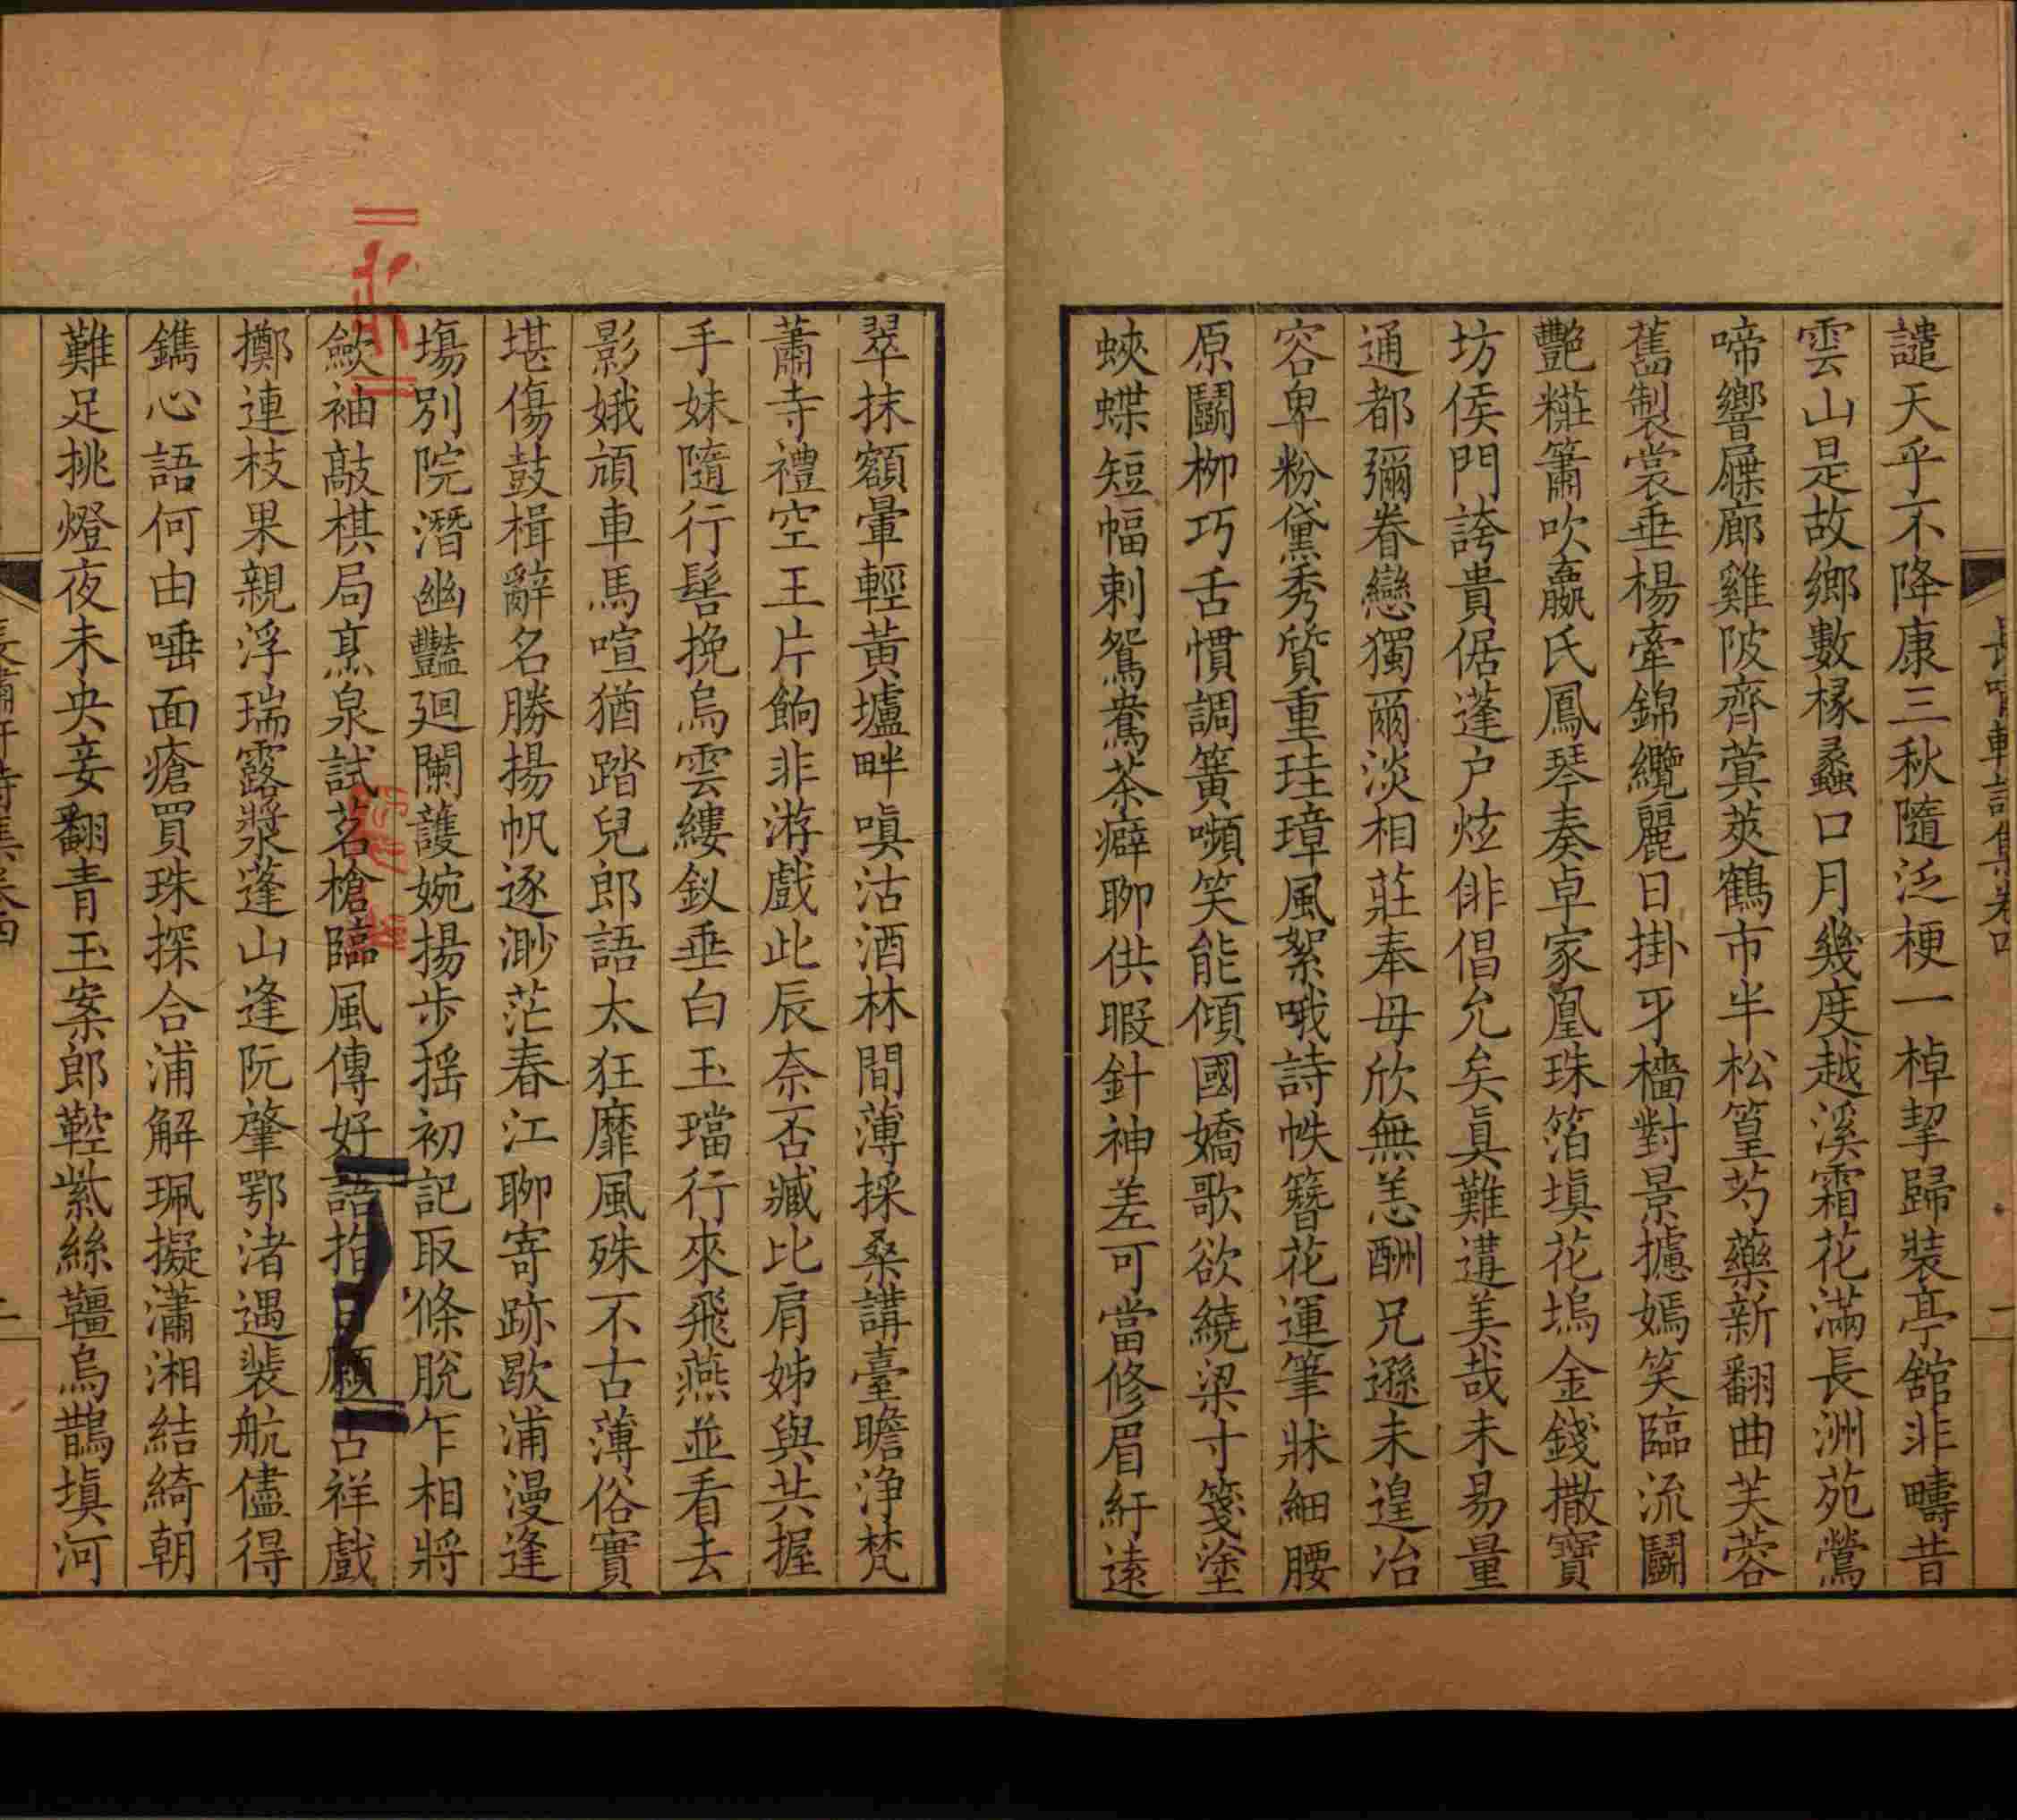 譴天乎不降康三秋隨泛梗一棹挈歸裝亭舘非疇昔
雲山是故鄉數椽蠡口月幾度越溪霜花滿長洲苑鶯
啼響屧廊雞陂齊蓂莢鶴市半松篁芍藥新翻曲芙蓉
舊製裳垂楊牽錦纜麗日掛牙檣對景攄嫣笑臨流鬭
艷糚簫吹嬴氏鳳琴奏卓家凰珠箔塡花塢金錢撒寶
坊侯門誇貴倨蓬户炫俳倡允矣眞難遘美哉未易量
通都彌眷戀獨爾淡相莊奉母欣無恙酬兄遜未遑冶
容卑粉黛秀質重珪璋風絮哦詩帙簪花運筆牀細腰
原鬭栁巧舌慣調簧嚬笑能傾國嬌歌欲繞梁寸箋塗
蛺蝶短幅刺鴛鴦茶癖聊供暇針神差可當修眉紆遠
長嘯軒詩集卷四
翠抹額暈輕黃壚畔嗔沽酒林間薄採桑講臺瞻淨梵
蕭寺禮空王片餉非游戲此辰奈否臧比肩姊與共握
手妹隨行髻挽烏雲縷釵垂白玉璫行來飛燕並看去
影娥頏車馬喧猶踏兒郎語太狂靡風殊不古薄俗實
堪傷鼓楫辭名勝揚帆逐渺茫春江聊寄跡歇浦漫逢
塲別院潛幽豔廻闌護婉揚步摇初記取條脫乍相將
歛袖敲棋局烹泉試茗槍臨風傳好語指日願吉祥戲
擲連枝果親浮瑞露漿蓬山逢阮肇鄂渚遇裴航儘得
鐫心語何由唾面瘡買珠探合浦解珮擬瀟湘結綺朝
難足挑燈夜未央妾翻青玉案郎鞚紫絲韁烏鵲塡河
長嘯軒詩集卷四